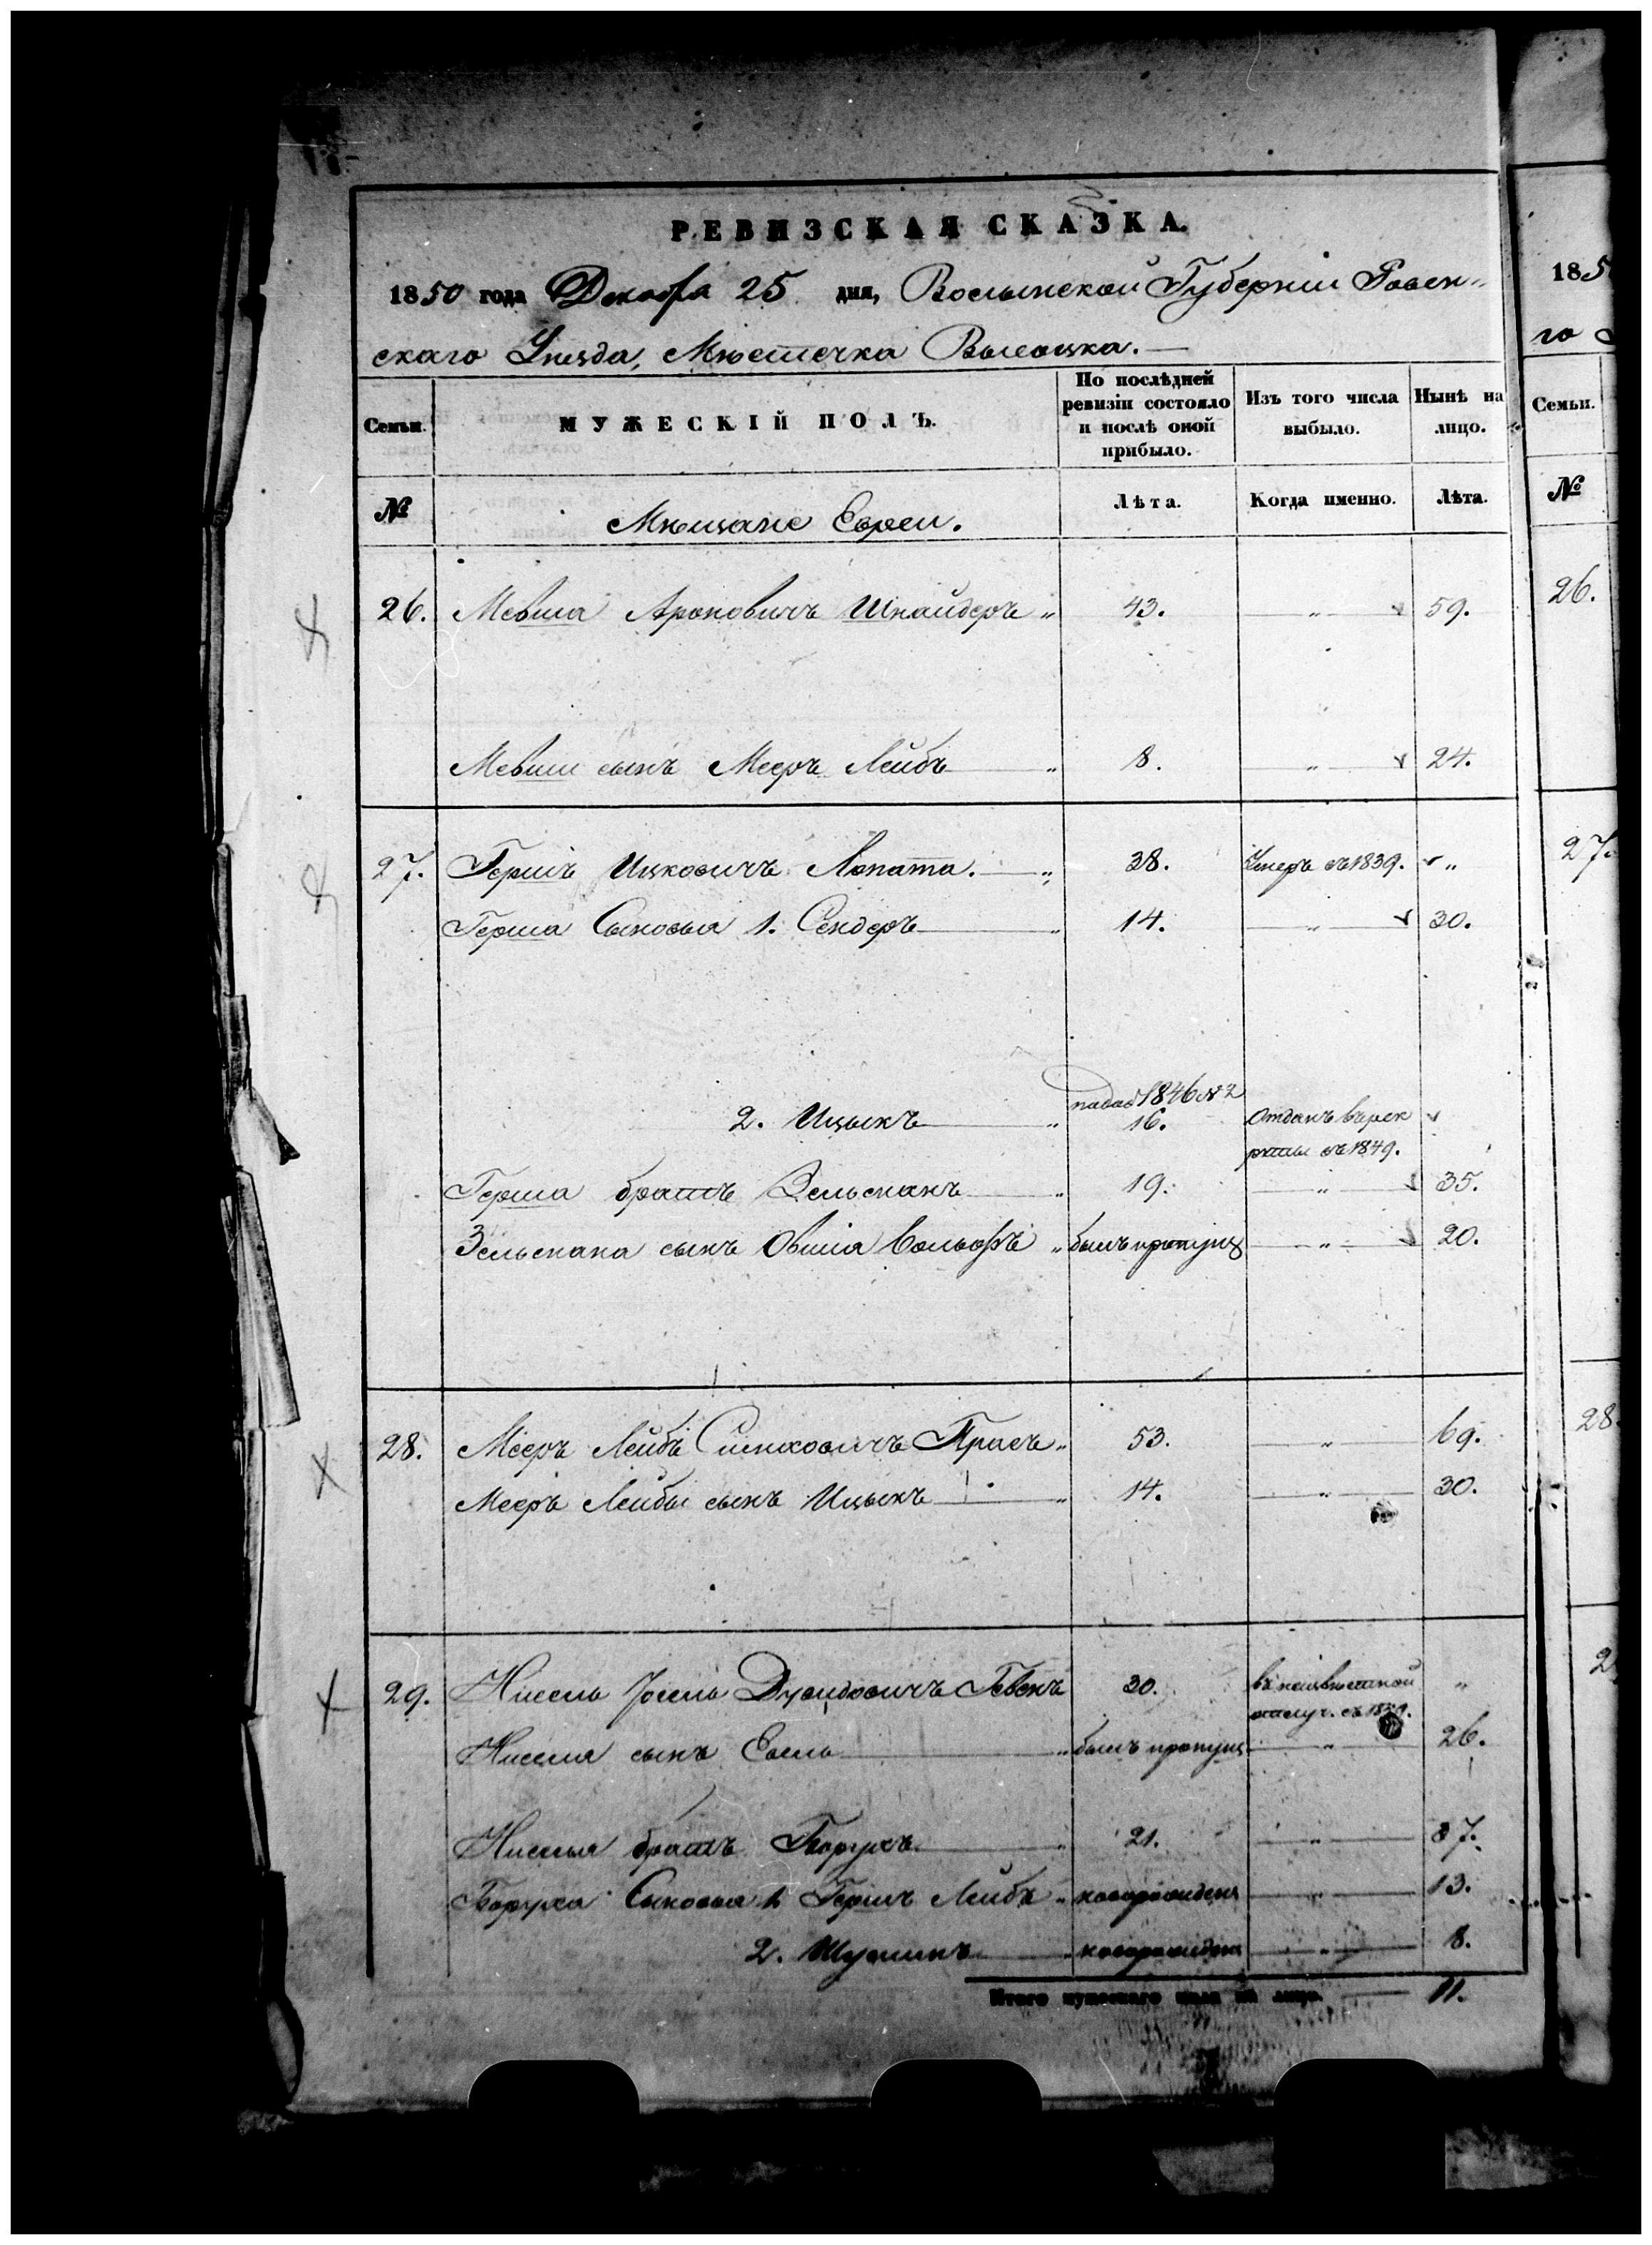 РЕВИЗСКАЯ СКАЗКА.
1850 года Декабря 25 дня, Волынской Губерніи Ровен-
скаго Уѣзда, Мѣстечка Высоцка.
185
го
Семьи. МУЖЕСКІЙ ПОЛЪ. По послѣдней ревизіи состояло и послѣ оной прибыло. Изъ того числа выбыло. Нынѣ на лицо. Семьи.
№ Мѣщане Евреи. Лѣта. Когда именно. Лѣта. №
26. Мевша Ароновичъ Шнайдеръ „ 43. „ 59. 26.
Мевши сынъ Мееръ Лейбъ „ 8. „ 24.
27. Гершъ Ицковичъ Лопата. „ 38. Умеръ въ 1839. „ 27.
Герша Сыновья 1. Сендеръ „ 14. „ 30.
1846 № 2
2. Ицыкъ „ 16. Отданъ в рек
руты въ 1849.
Герша братъ Зельманъ „ 19. „ 35.
Зельмана сынъ Овшія Вольфъ „ былъ пропущ „ 20.
28. Мееръ Лейбъ Присъ „ 53. „ 69. 28
Мееръ Лейбы сынъ Ицыкъ „ 14. „ 30.
29. Нисель Іосель Дувидовичъ 20. въ неизвѣстной „ 2
отлуч. съ 1839.
Нисселя сынъ Евель „ былъ пропущ. „ 26.
Нисселя братъ Борухъ „ 21. „ 37.
Боруха Сыновья 1 Гершъ Лейбъ „ новорожден „ 13.
2. „ новорожден „ 8.
Итого мужескаго пола на лицо. 11.